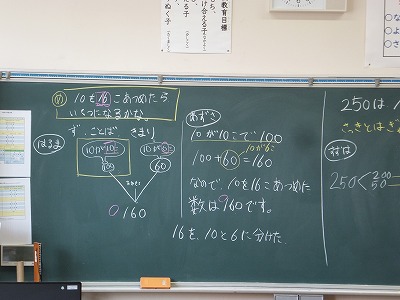 教育目標
ち、
け合える子
たる子
ぬく子
め 10を16こあつめたら
いくつになるかな。
ず、ことば きまり
はるま
10が10こ 10が6こ
100 60
160
あずさ
10が10こで100
10が6こ
100+60=160
なので、10を16こあつめた
数は160です。
16を、10と6に分けた
250は
さっきとはぎ
ずは
250<200
50=